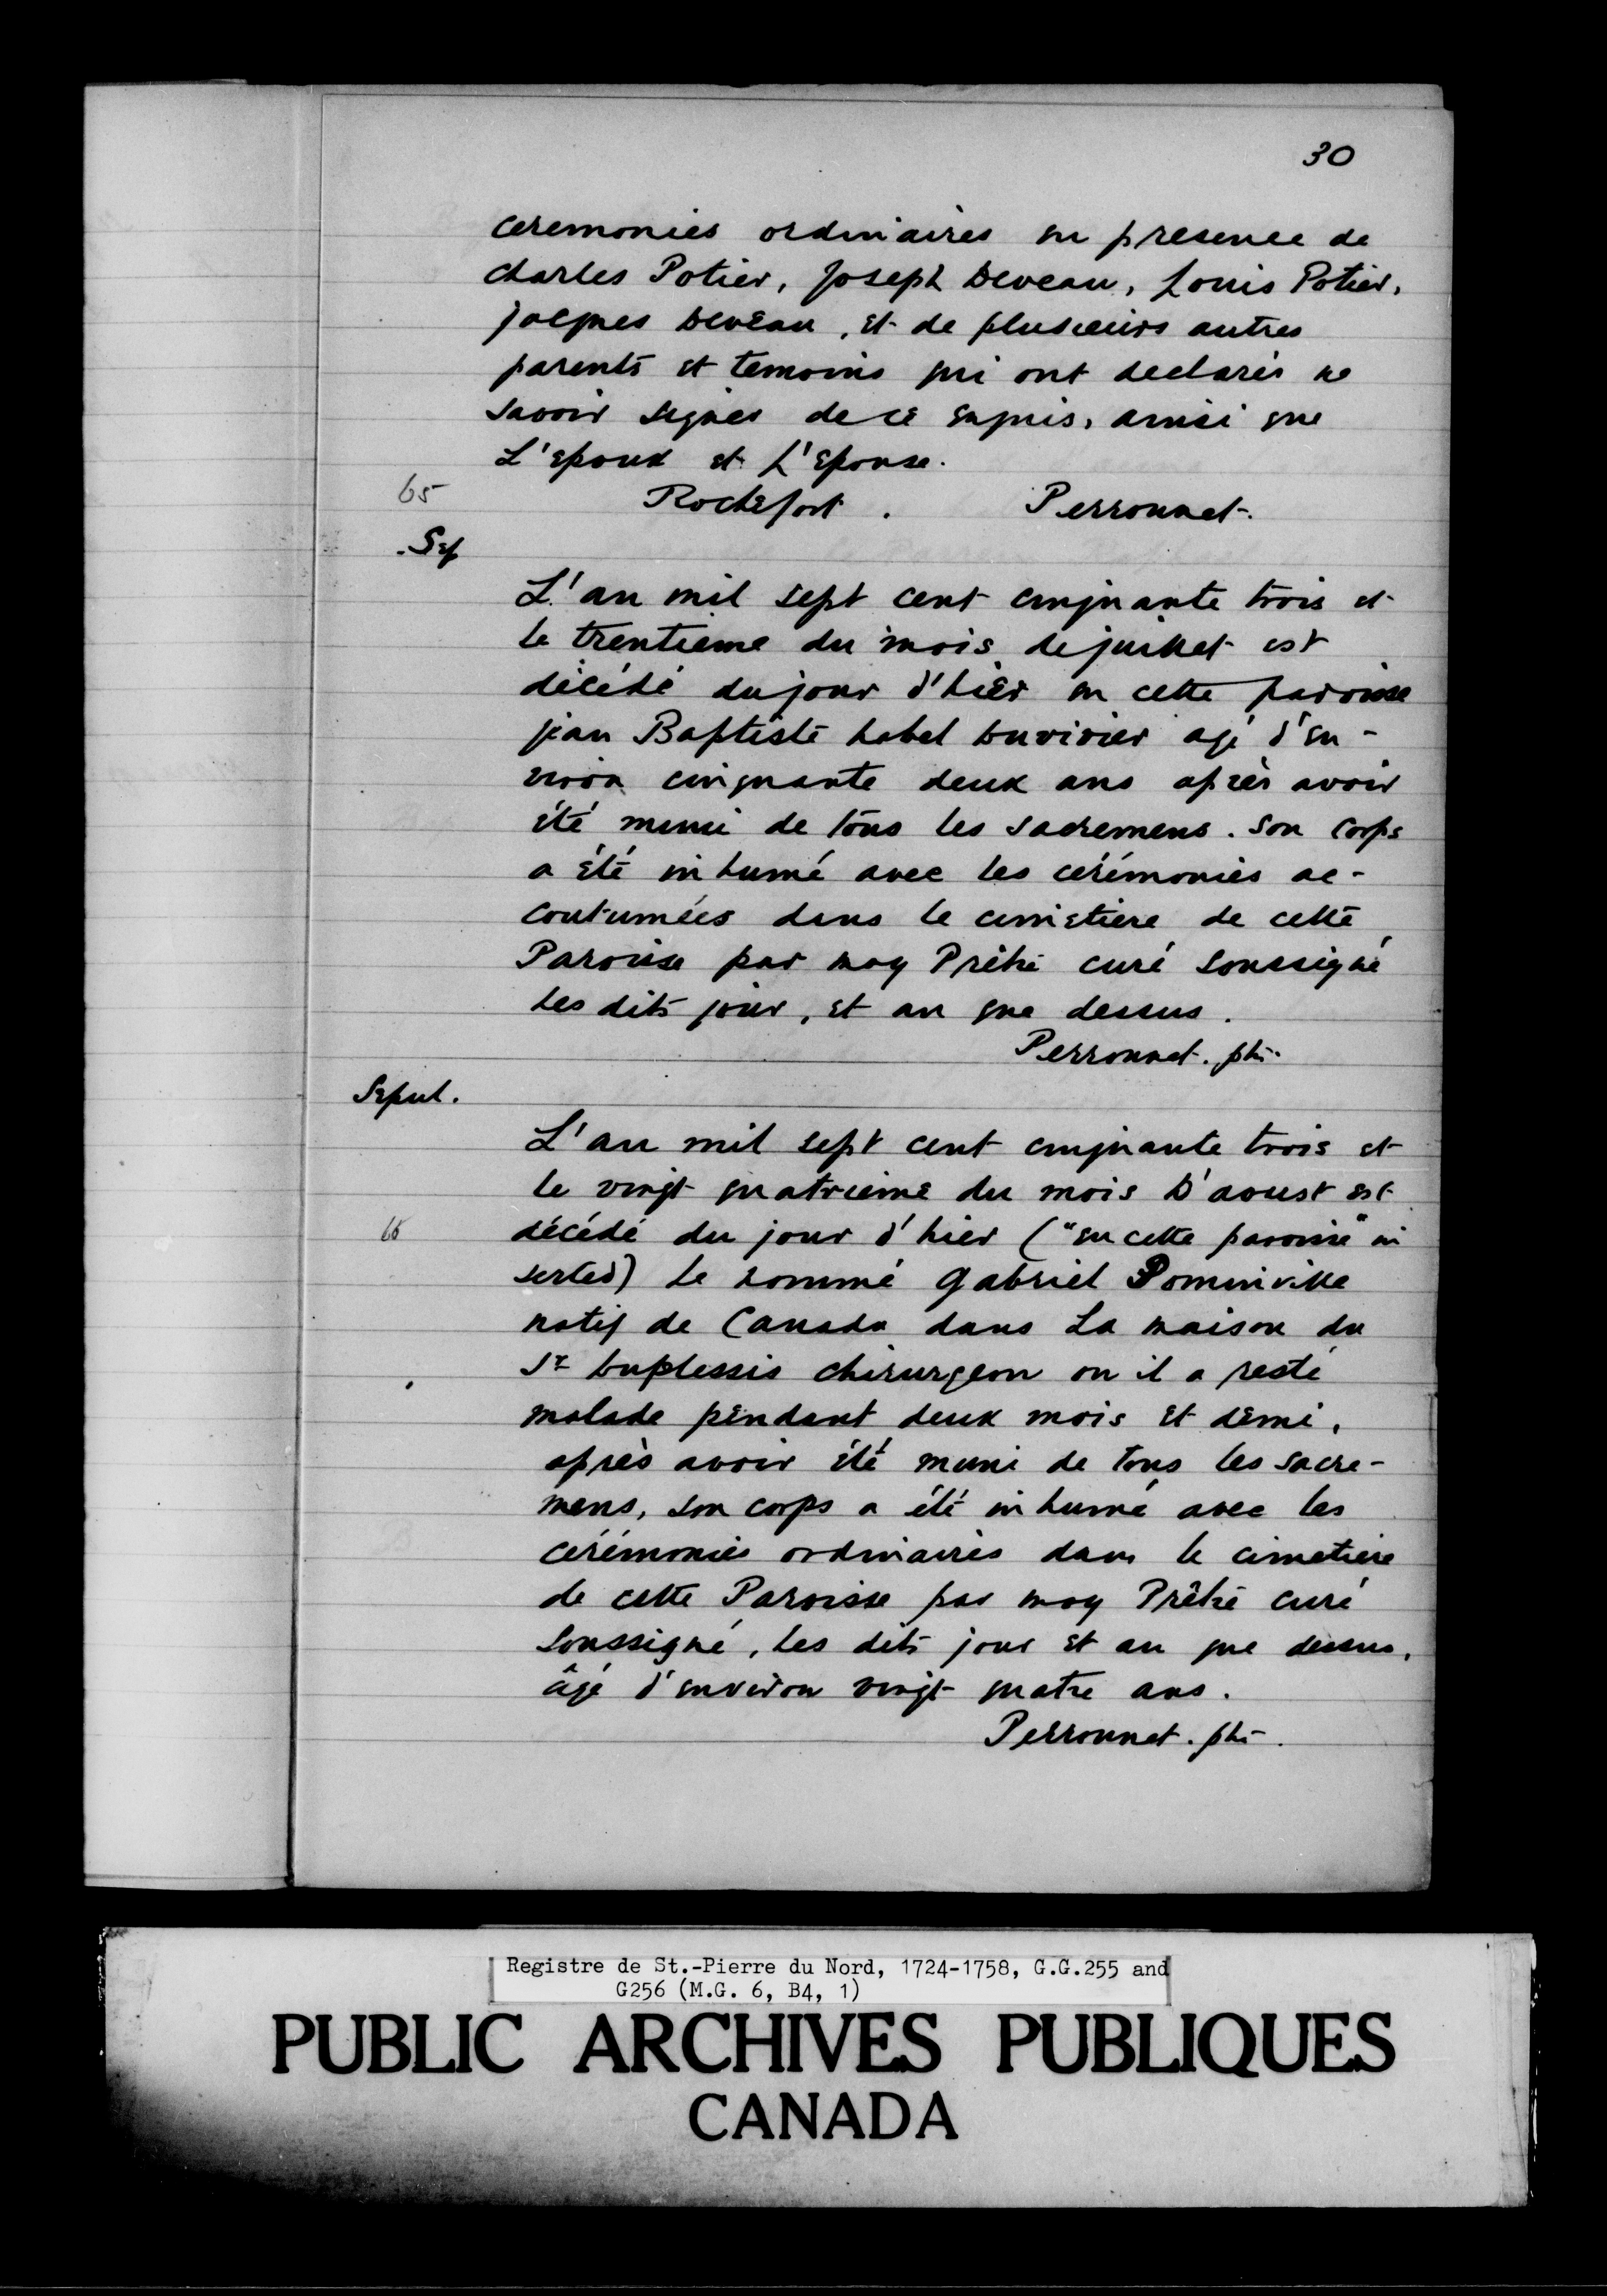 30
ceremonies ordinaires en presence de
Charles Potier, Joseph Deveau, Louis Potier,
jacques Deveau, et de plusieurs autres
parents et temoins qui ont declarés ne
savoir signer de ce enquis, ainsi que
L'epoux et L'Epouse.
65 Rochefort. Perronnet.
Sep
L'an mil sept cent cinquante trois et
le trentieme du mois de juillet est
décédé du jour d'hier en cette paroisse
jean Baptiste habel Duvivier agé d'en-
viron cinquante deux ans après avoir
été muni de tous les sacremens. Son corps
a été inhumé avec les cérémonies ac-
coutumées dans le cimetiere de cette
Paroisse par moy Prêtre curé soussigné
les dits jour, et an que dessus.
Perronnet. ptr.
Sepul.
L'an mil sept cent cinquante trois et
le vingt quatrieme du mois D'aoust est
66 décédé du jour d'hier ("en cette paroisse" in
serted) le nommé Gabriel Pominville
natif de Canada dans La maison du
Sr Duplessis chirurgeon ou il a resté
malade pendant deux mois et demi,
après avoir été muni de tous les sacre-
mens, son corps a été inhumé avec les
cérémonies ordinaires dans le cimetiere
de cette Paroisse par moy Prêtre curé
soussigné, les dits jour et an que dessus,
âgé d'environ vingt quatre ans.
Perronnet. ptr.
Registre de St.-Pierre du Nord, 1724-1758, G.G.255 and
G256 (M.G. 6, B4, 1)
PUBLIC ARCHIVES PUBLIQUES
CANADA